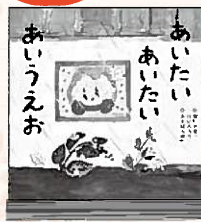 あいたい
あいたい
あいうえお